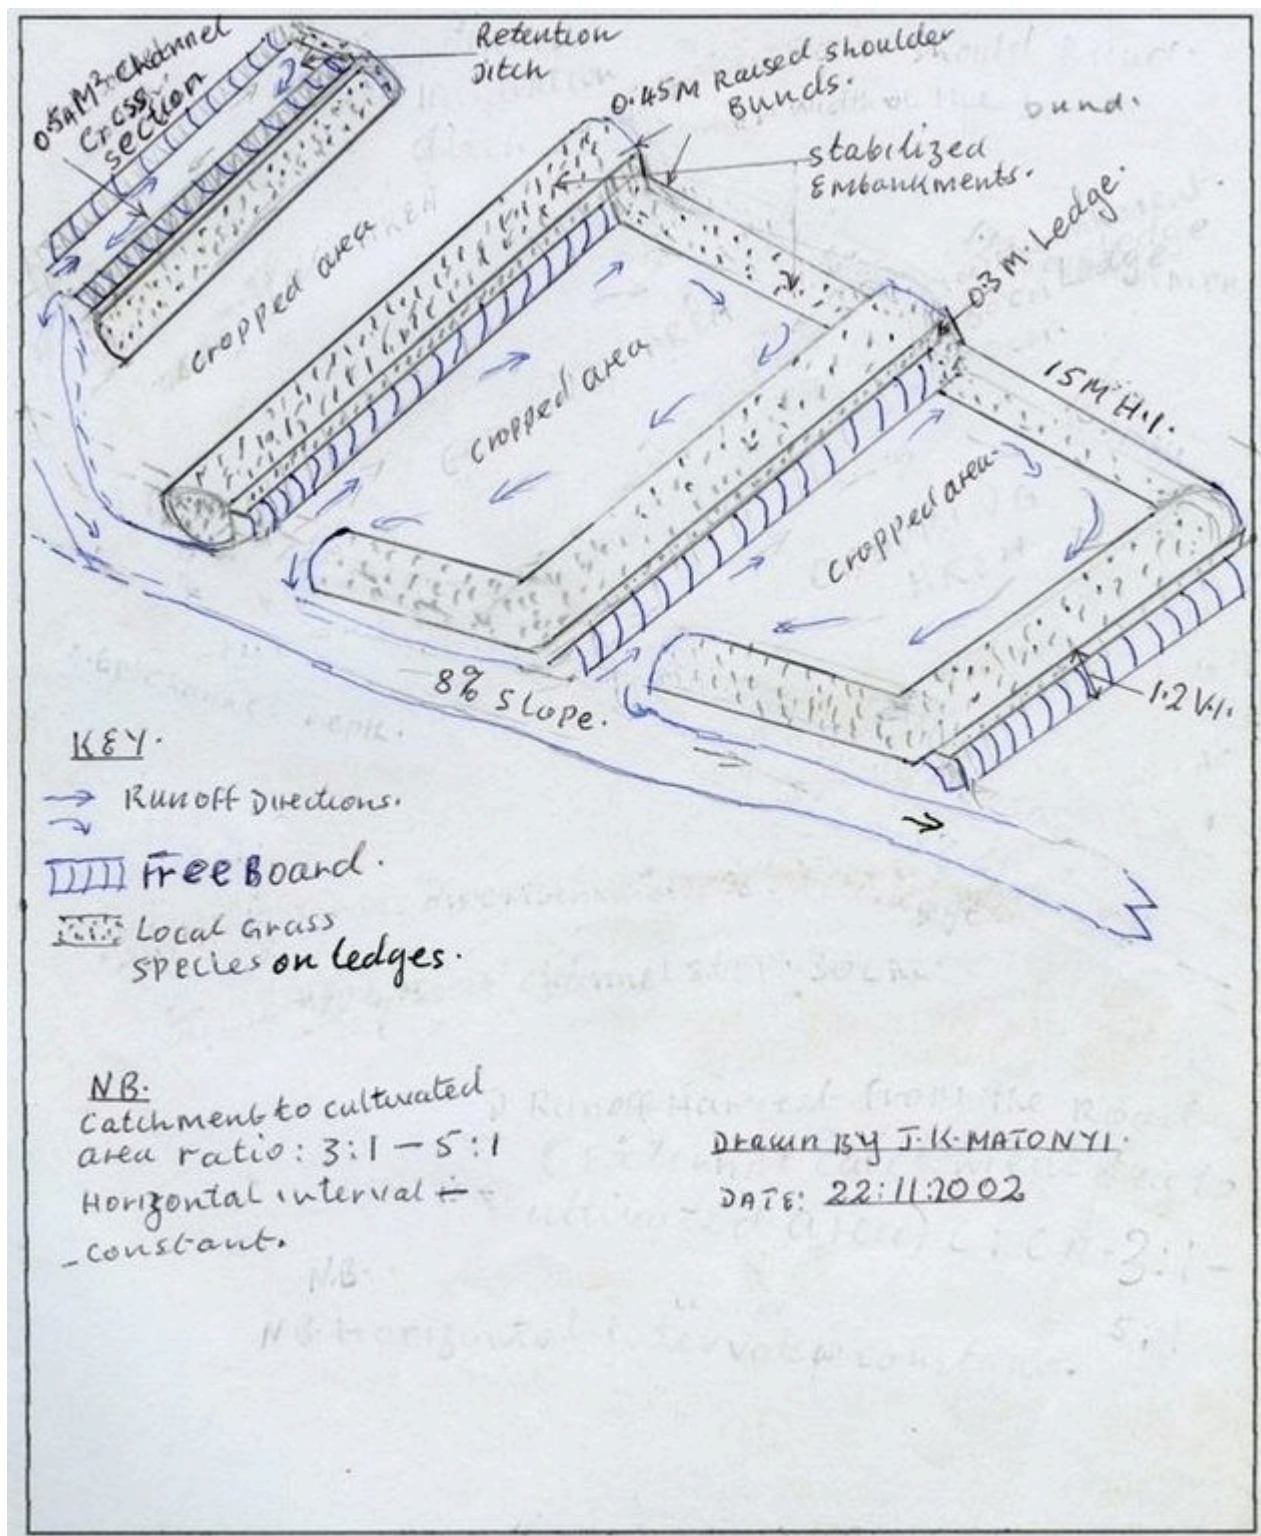 0.54M² Channel
Cross
section
Retention
Ditch
0.45M Raised shoulder
Bunds.
Stabilized
Embankments.
0.3 M. Ledge.
15M H.I.
Cropped area
Cropped area
Cropped area.
1.2 V.I.
8% Slope.
KEY.
Runoff Directions.
Free Board.
Local Grass
species on ledges.
NB.
Catchment to cultivated
area ratio: 3:1 – 5:1
Horizontal interval –
– constant.
Drawn By J.K. MATONYI.
DATE: 22:11:2002